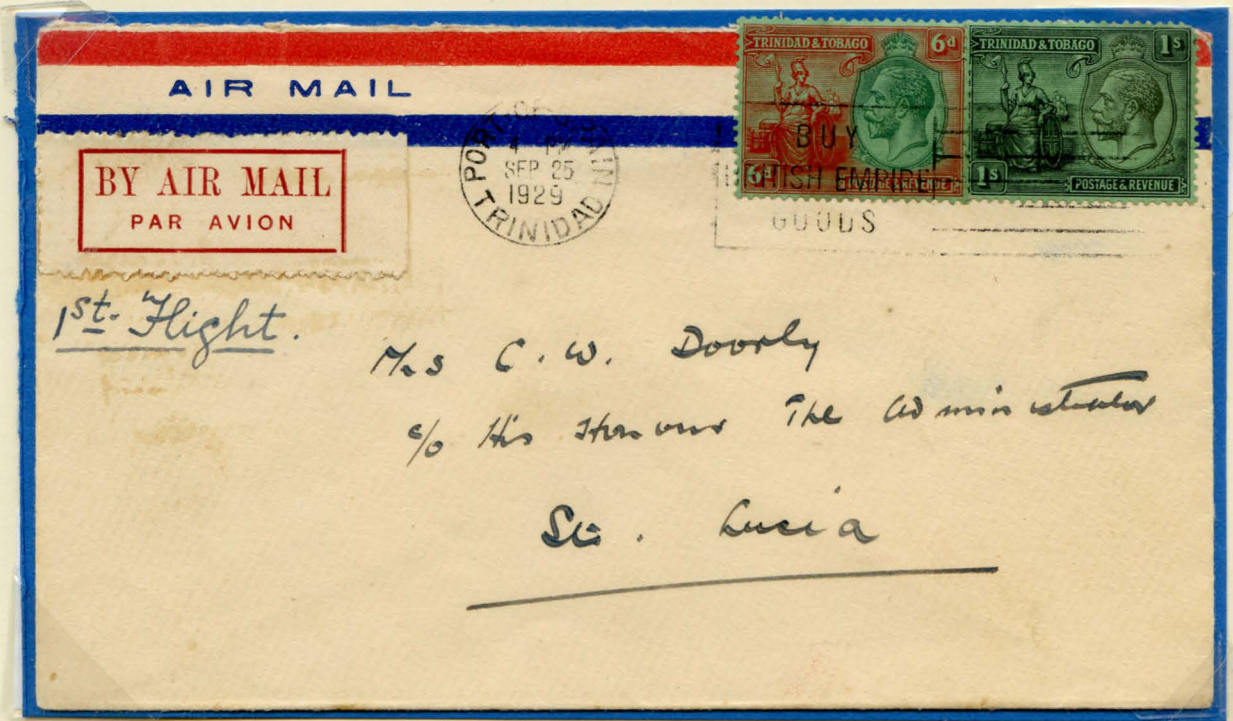 AIR MAIL
BY AIR MAIL
PAR AVION
PORT OF SPAIN
4 PM
SEP 25
1929
TRINIDAD
TRINIDAD & TOBAGO 6d
6d POSTAGE & REVENUE
TRINIDAD & TOBAGO 1s
1s POSTAGE & REVENUE
BUY
BRITISH EMPIRE
GOODS
1st. Flight.
Mrs C. W. Doorly
c/o His Honour The Administrator
St. Lucia